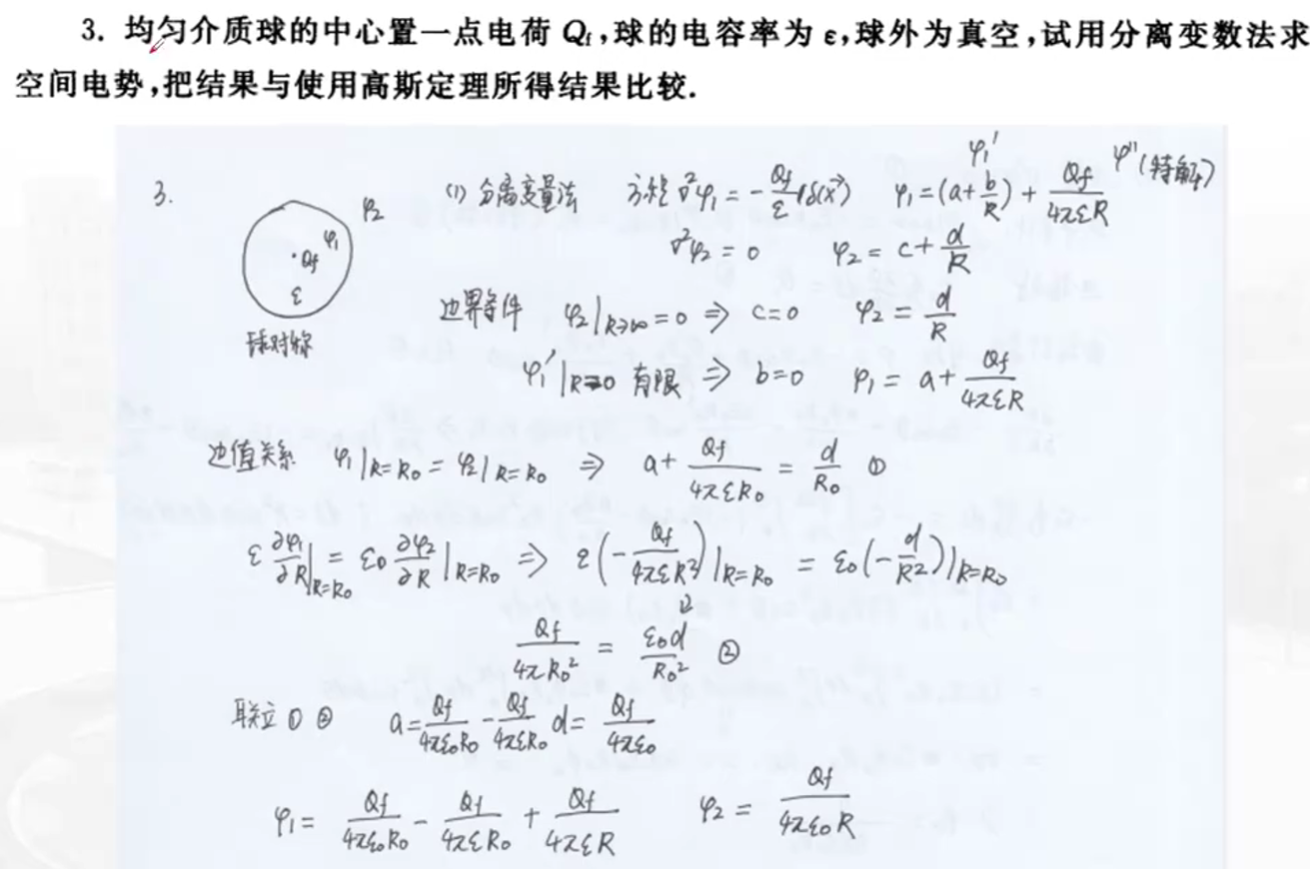 3. 均匀介质球的中心置一点电荷 Qf,球的电容率为 ε,球外为真空,试用分离变数法求
空间电势,把结果与使用高斯定理所得结果比较.
3. (1) 分离变量法 方程 ∇²φ₁ = -Qf/ε δ(x⃗) φ₁ = (a + b/R) + Qf/4πεR φ₁' φ''(特解)
φ₂ φ₁ ·Qf ε 球对称
∇²φ₂ = 0 φ₂ = c + d/R
边界条件 φ₂|R→∞ = 0 ⇒ c=0 φ₂ = d/R
φ₁'|R→0 有限 ⇒ b=0 φ₁ = a + Qf/4πεR
边值关系 φ₁|R=R₀ = φ₂|R=R₀ ⇒ a + Qf/4πεR₀ = d/R₀ ①
ε ∂φ₁/∂R|R=R₀ = ε₀ ∂φ₂/∂R|R=R₀ ⇒ ε(-Qf/4πεR²)|R=R₀ = ε₀(-d/R²)|R=R₀
⇓
Qf/4πR₀² = ε₀d/R₀² ②
联立 ① ② a = Qf/4πε₀R₀ - Qf/4πεR₀ d = Qf/4πε₀
φ₁ = Qf/4πε₀R₀ - Qf/4πεR₀ + Qf/4πεR φ₂ = Qf/4πε₀R